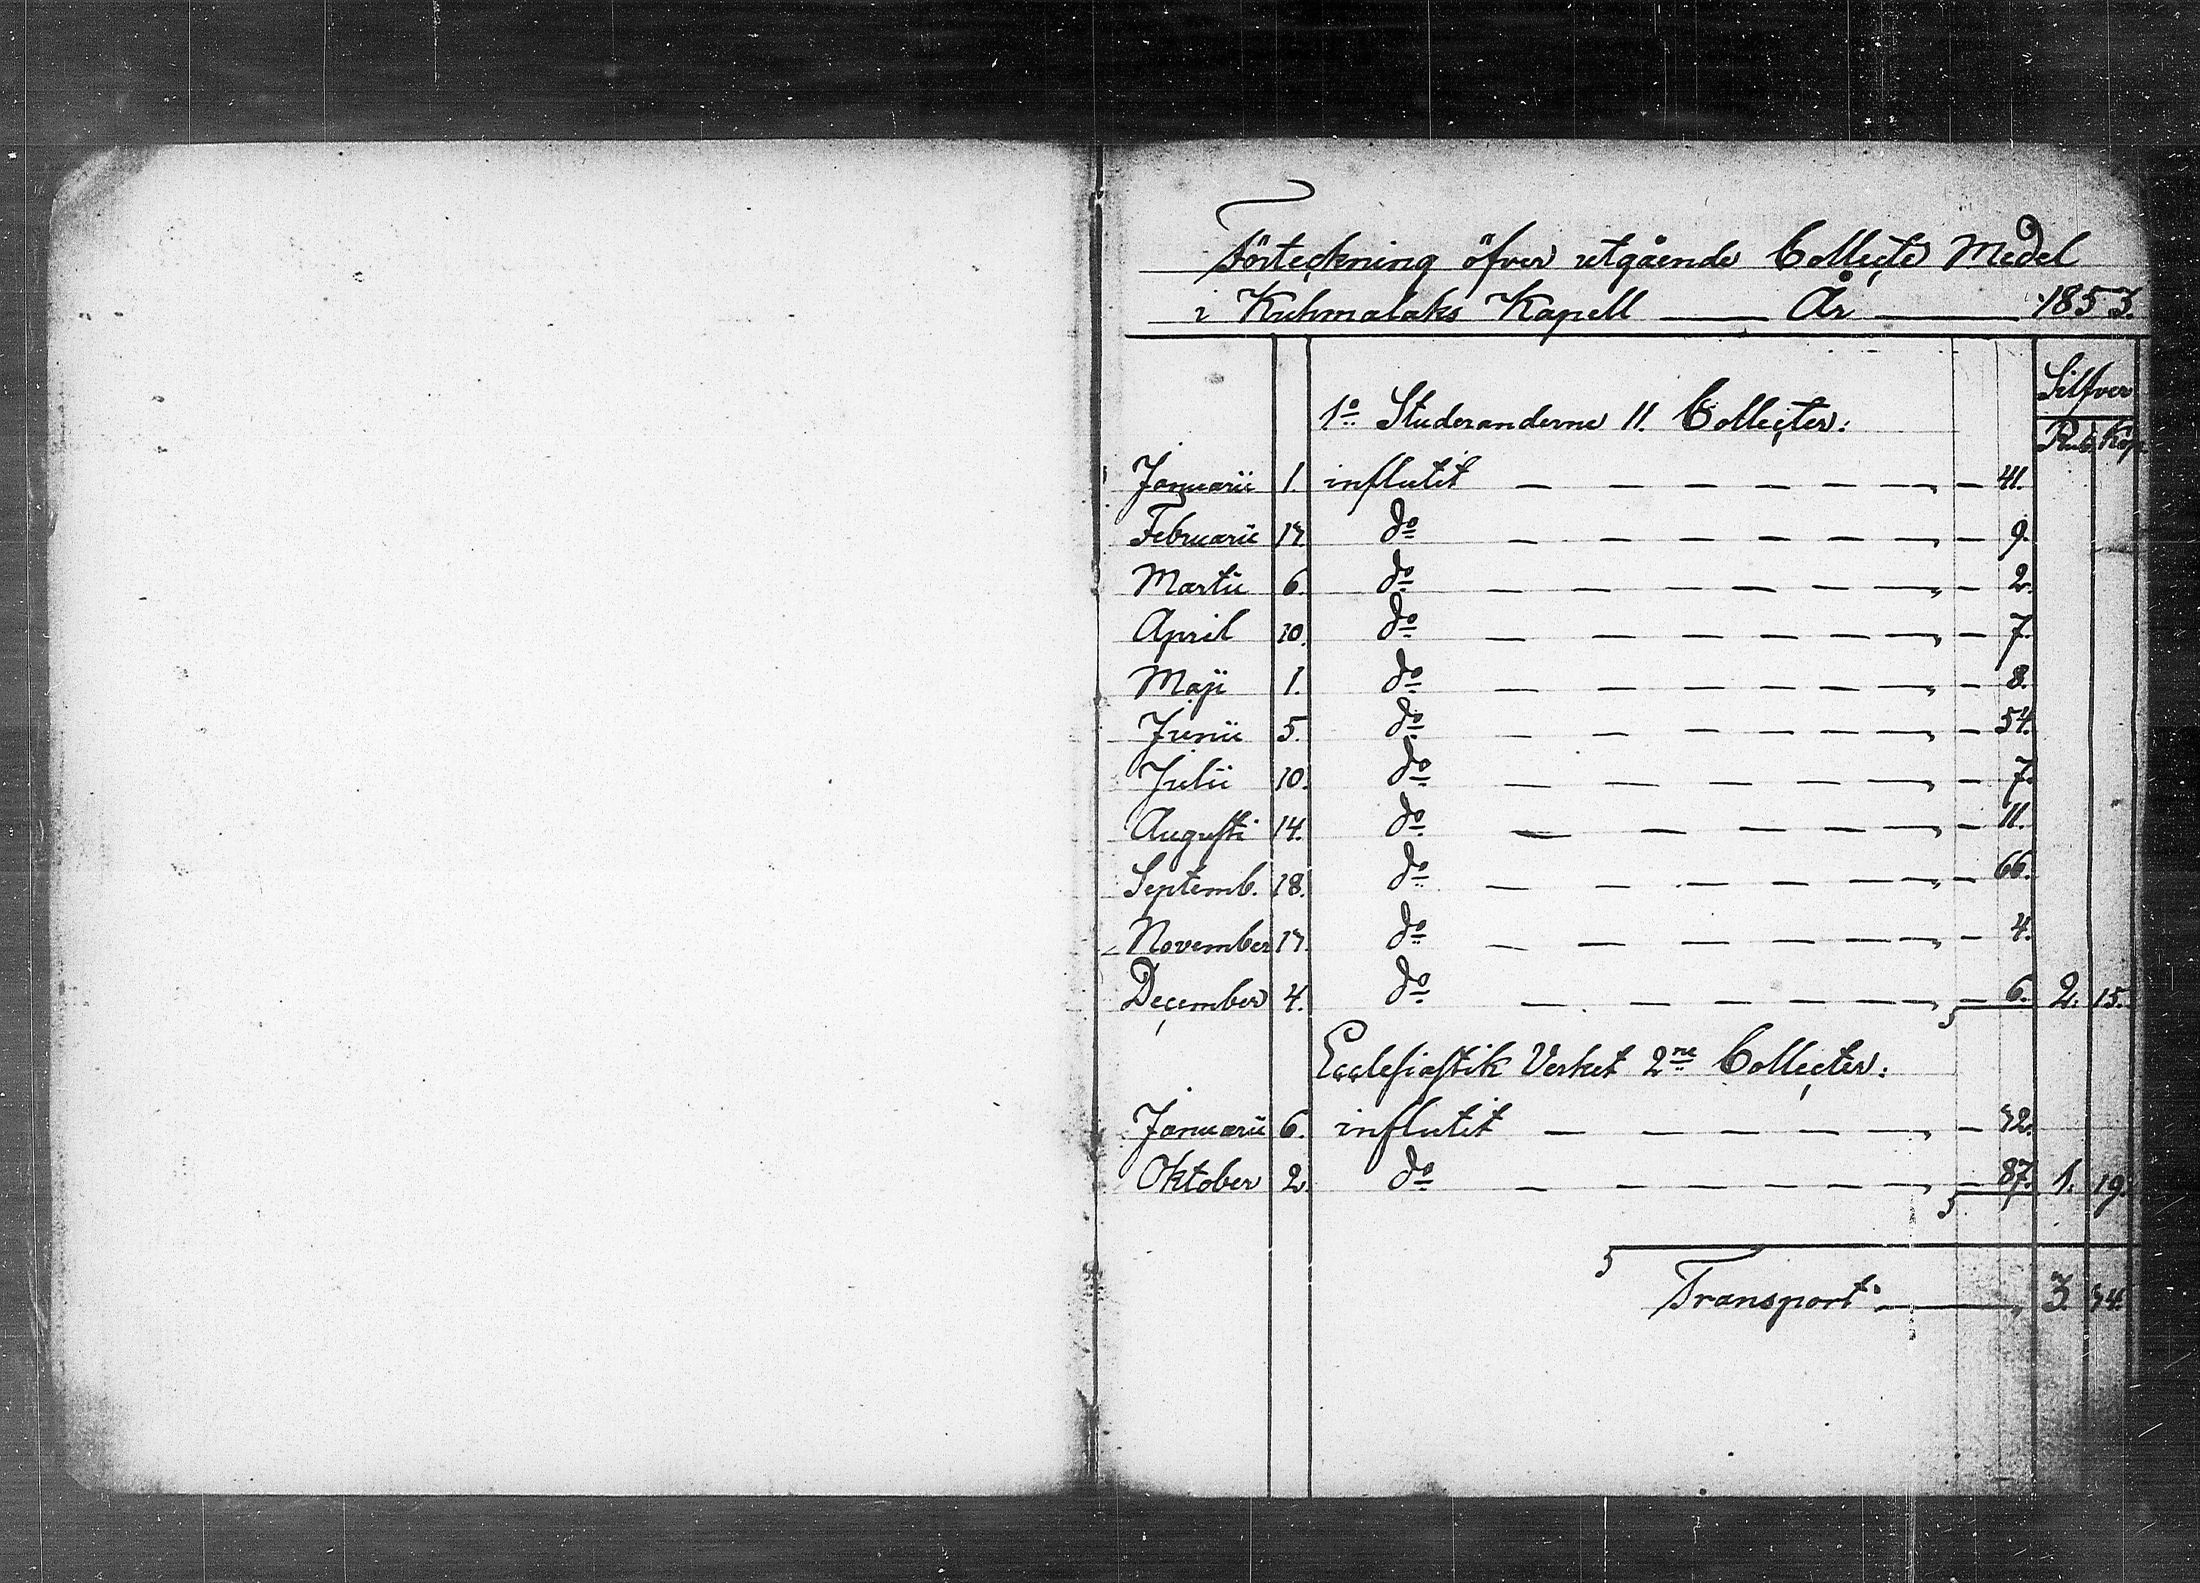 Förteckning öfver utgående Collecte Medel
i Kuhmalaks Kapell — År — 1853.
Silfver
Rub. Kop.
1o Studeranderne 11. Collecter:
Januarii 1. influtit — 41.
Februarii 13. do — 9.
Martii 6. do — 2.
April 10. do — 7.
Maji 1. do — 8.
Junii 5. do — 54.
Julii 10. do — 7.
Augusti 14. do — 11.
Septemb. 18. do — 66.
November 13. do — 4.
December 4. do — 6. 2. 15.
Ecclesiastik Verket 2ne Collecter:
Januarii 6. influtit — 32.
Oktober 2. do — 87. 1. 19.
Transport — 3. 34.